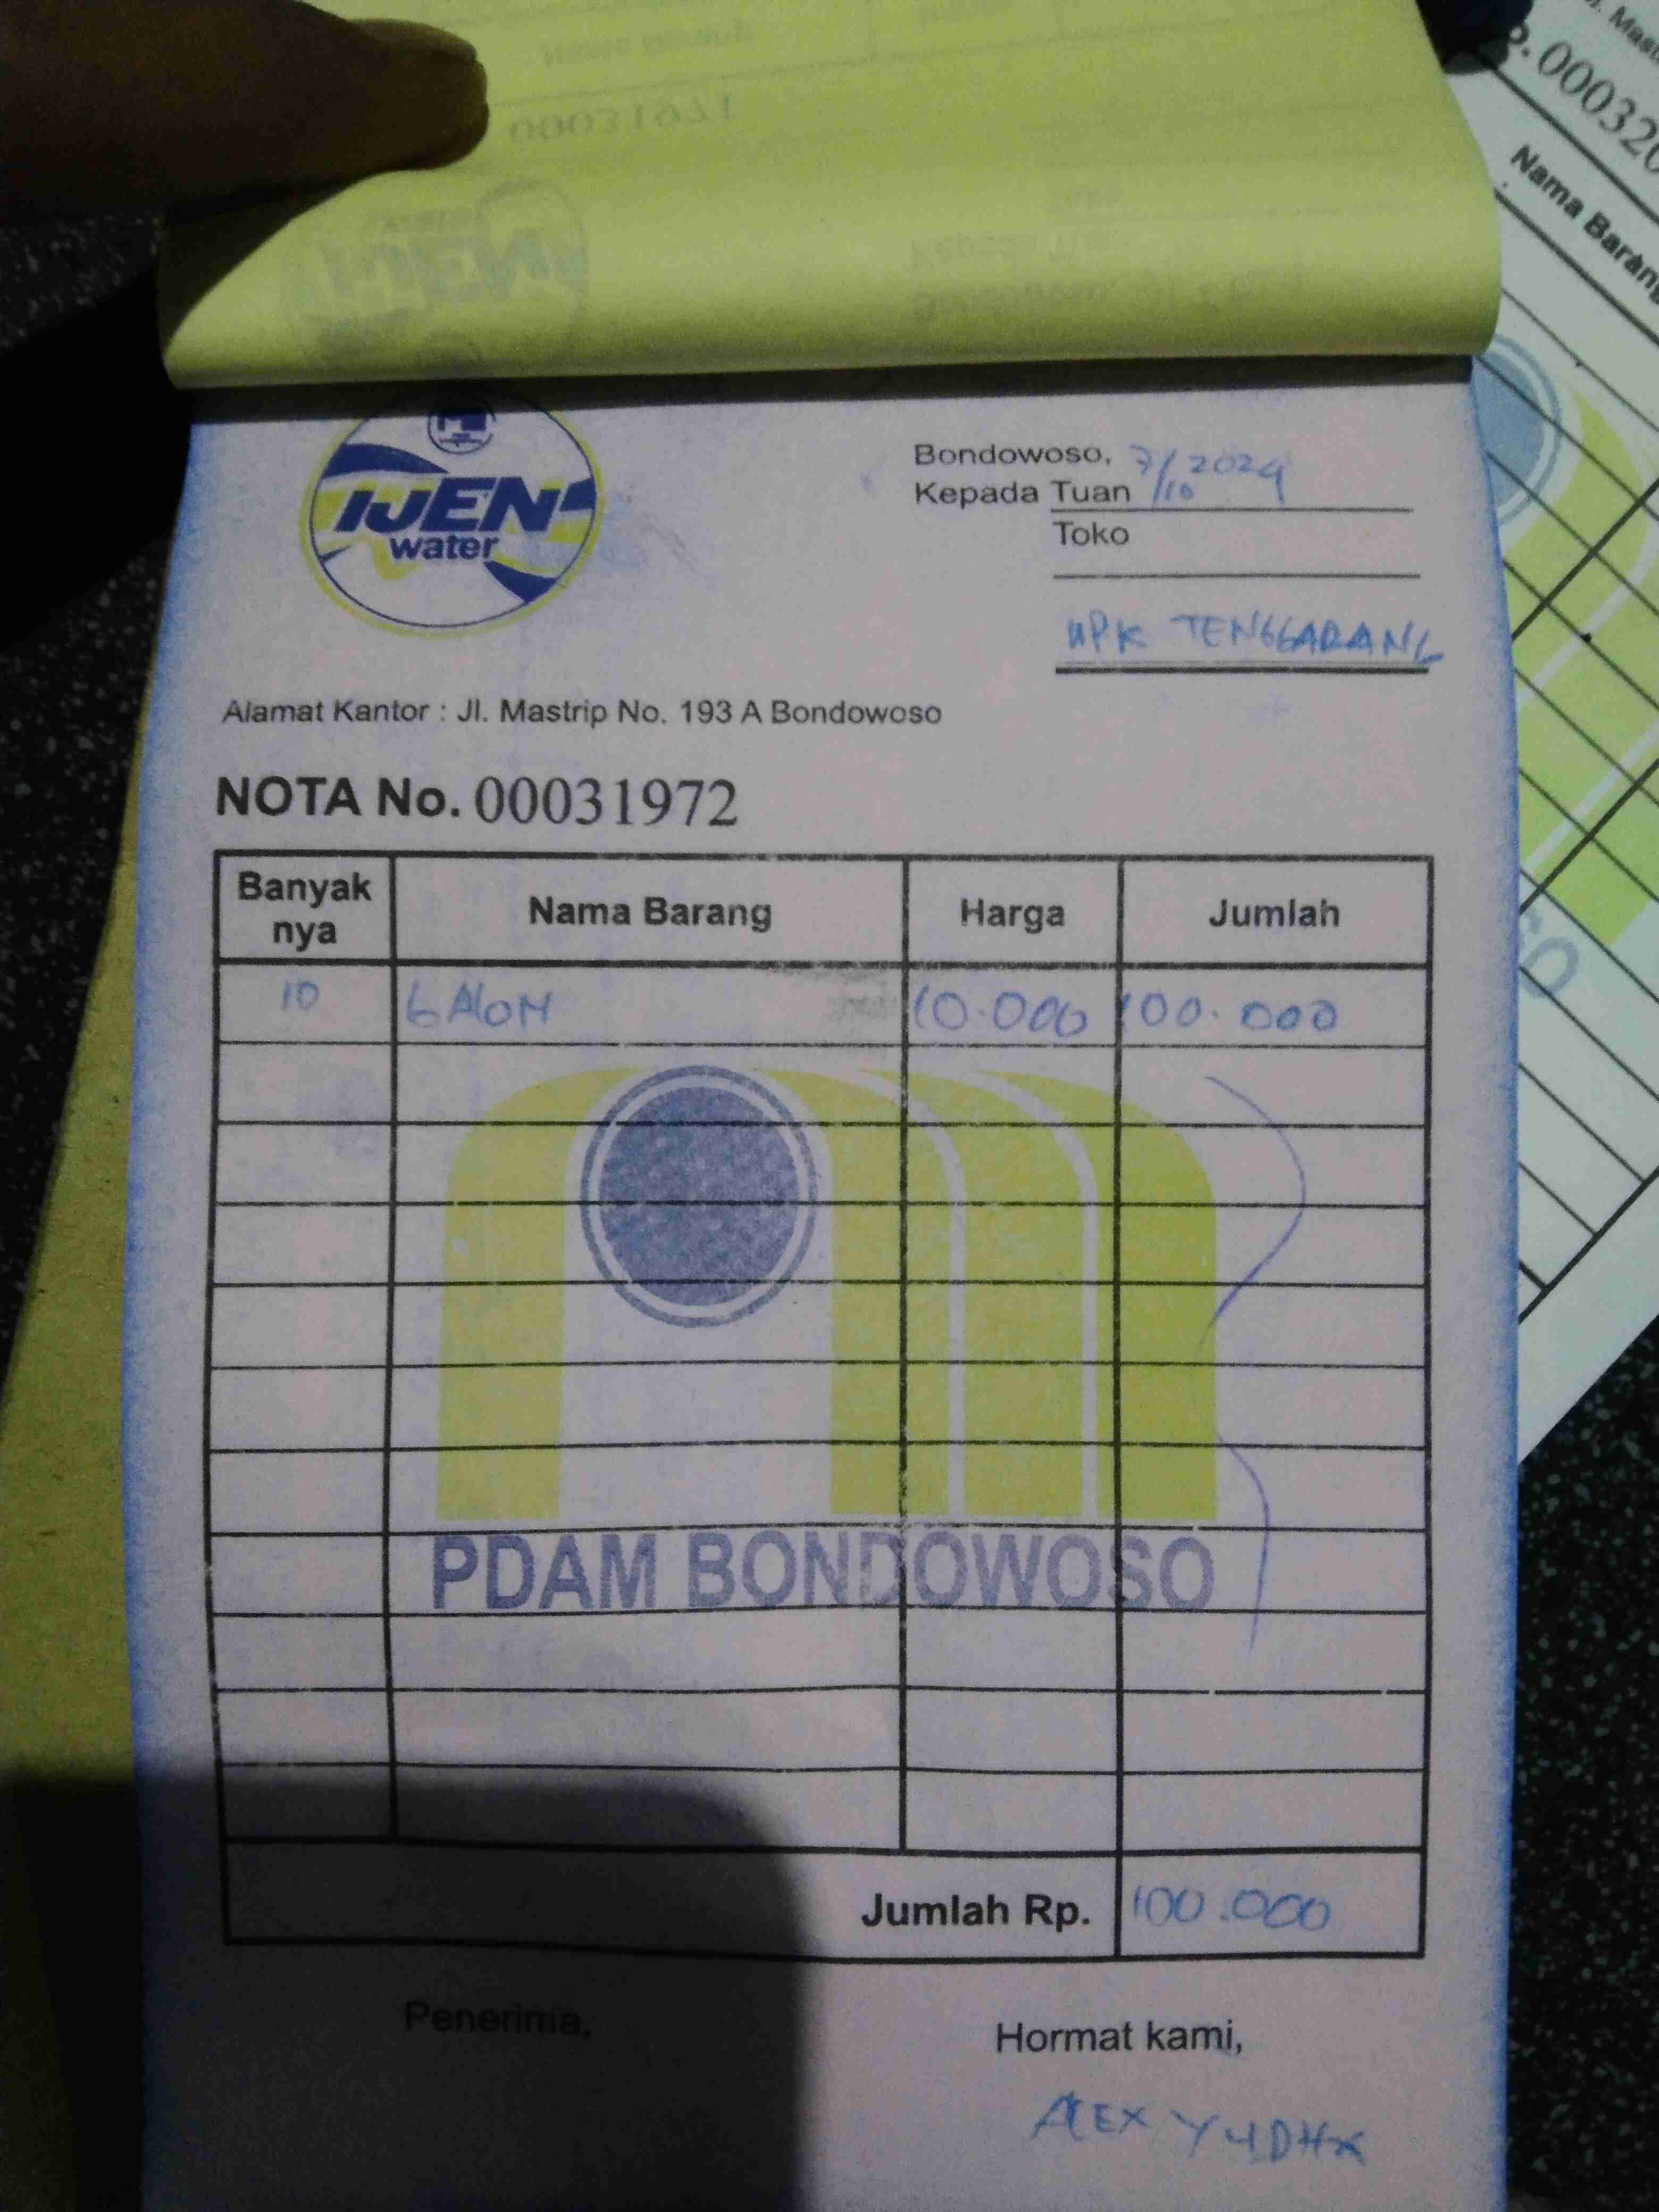 IJEN
water
Bondowoso, 7/10 2024
Kepada Tuan
Toko
UPK TENGGARANG
Alamat Kantor : Jl. Mastrip No. 193 A Bondowoso
NOTA No. 00031972
Banyak nya Nama Barang Harga Jumlah
10 GALON 10.000 100.000
PDAM BONDOWOSO
Jumlah Rp. 100.000
Penerima,
Hormat kami,
ALEX YUDHA
00031971
Nama Barang